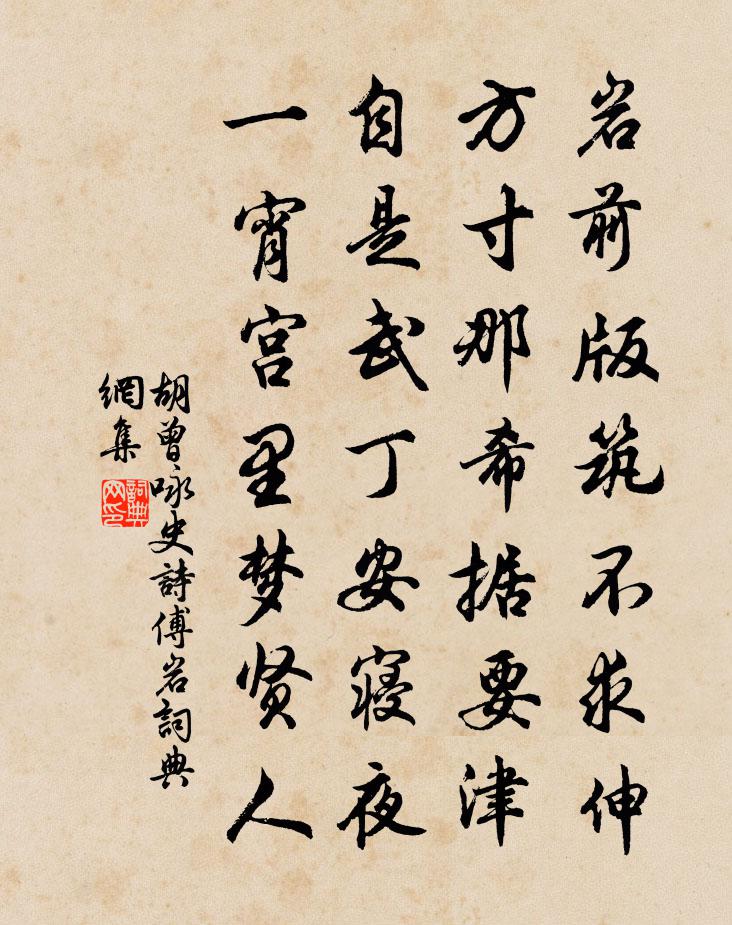 岩前版筑不求伸
方寸那希据要津
自是武丁安寝夜
一宵宫里梦贤人
胡曾咏史詩傅岩詞典
網集
詞典
网印